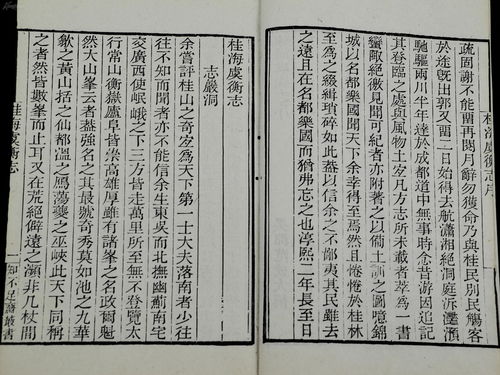 桂海虞衡志序
疏固謝不能畱再閱月辭勿獲命乃與桂民別民觴客
於途旣出郭又畱二日始得去航瀟湘絕洞庭泝灩澦
馳驅兩川半年達於成都道中無事時念昔游因追記
其登臨之處與風物土宜凡方志所未載者萃爲一書
蠻陬絕徼見聞可紀者亦附著之以備土訓之圖噫錦
城以名都樂國聞天下余幸得至焉然且惓惓於桂林
至爲之綴緝瑣碎如此蓋以信余之不鄙夷其民雖去
之遠且在名都樂國而猶弗忘之也淳熙二年長至日
桂海虞衡志
志巖洞
余嘗評桂山之奇宜爲天下第一士大夫落南者少往
往不知而聞者亦不能信余生東吳而北撫幽薊南宅
交廣西使岷峨之下三方皆走萬里所至無不登覽太
行常山衡嶽廬阜皆崇高雄厚雖有諸峯之名政爾魁
然大山峯云者蓋強名之其最號奇秀莫如池之九華
歙之黃山括之仙都溫之鴈蕩夔之巫峽此天下同稱
之者然皆數峯而止耳又在荒絕僻遠之瀕非几杖間
桂海虞衡志
一
知不足齋叢書